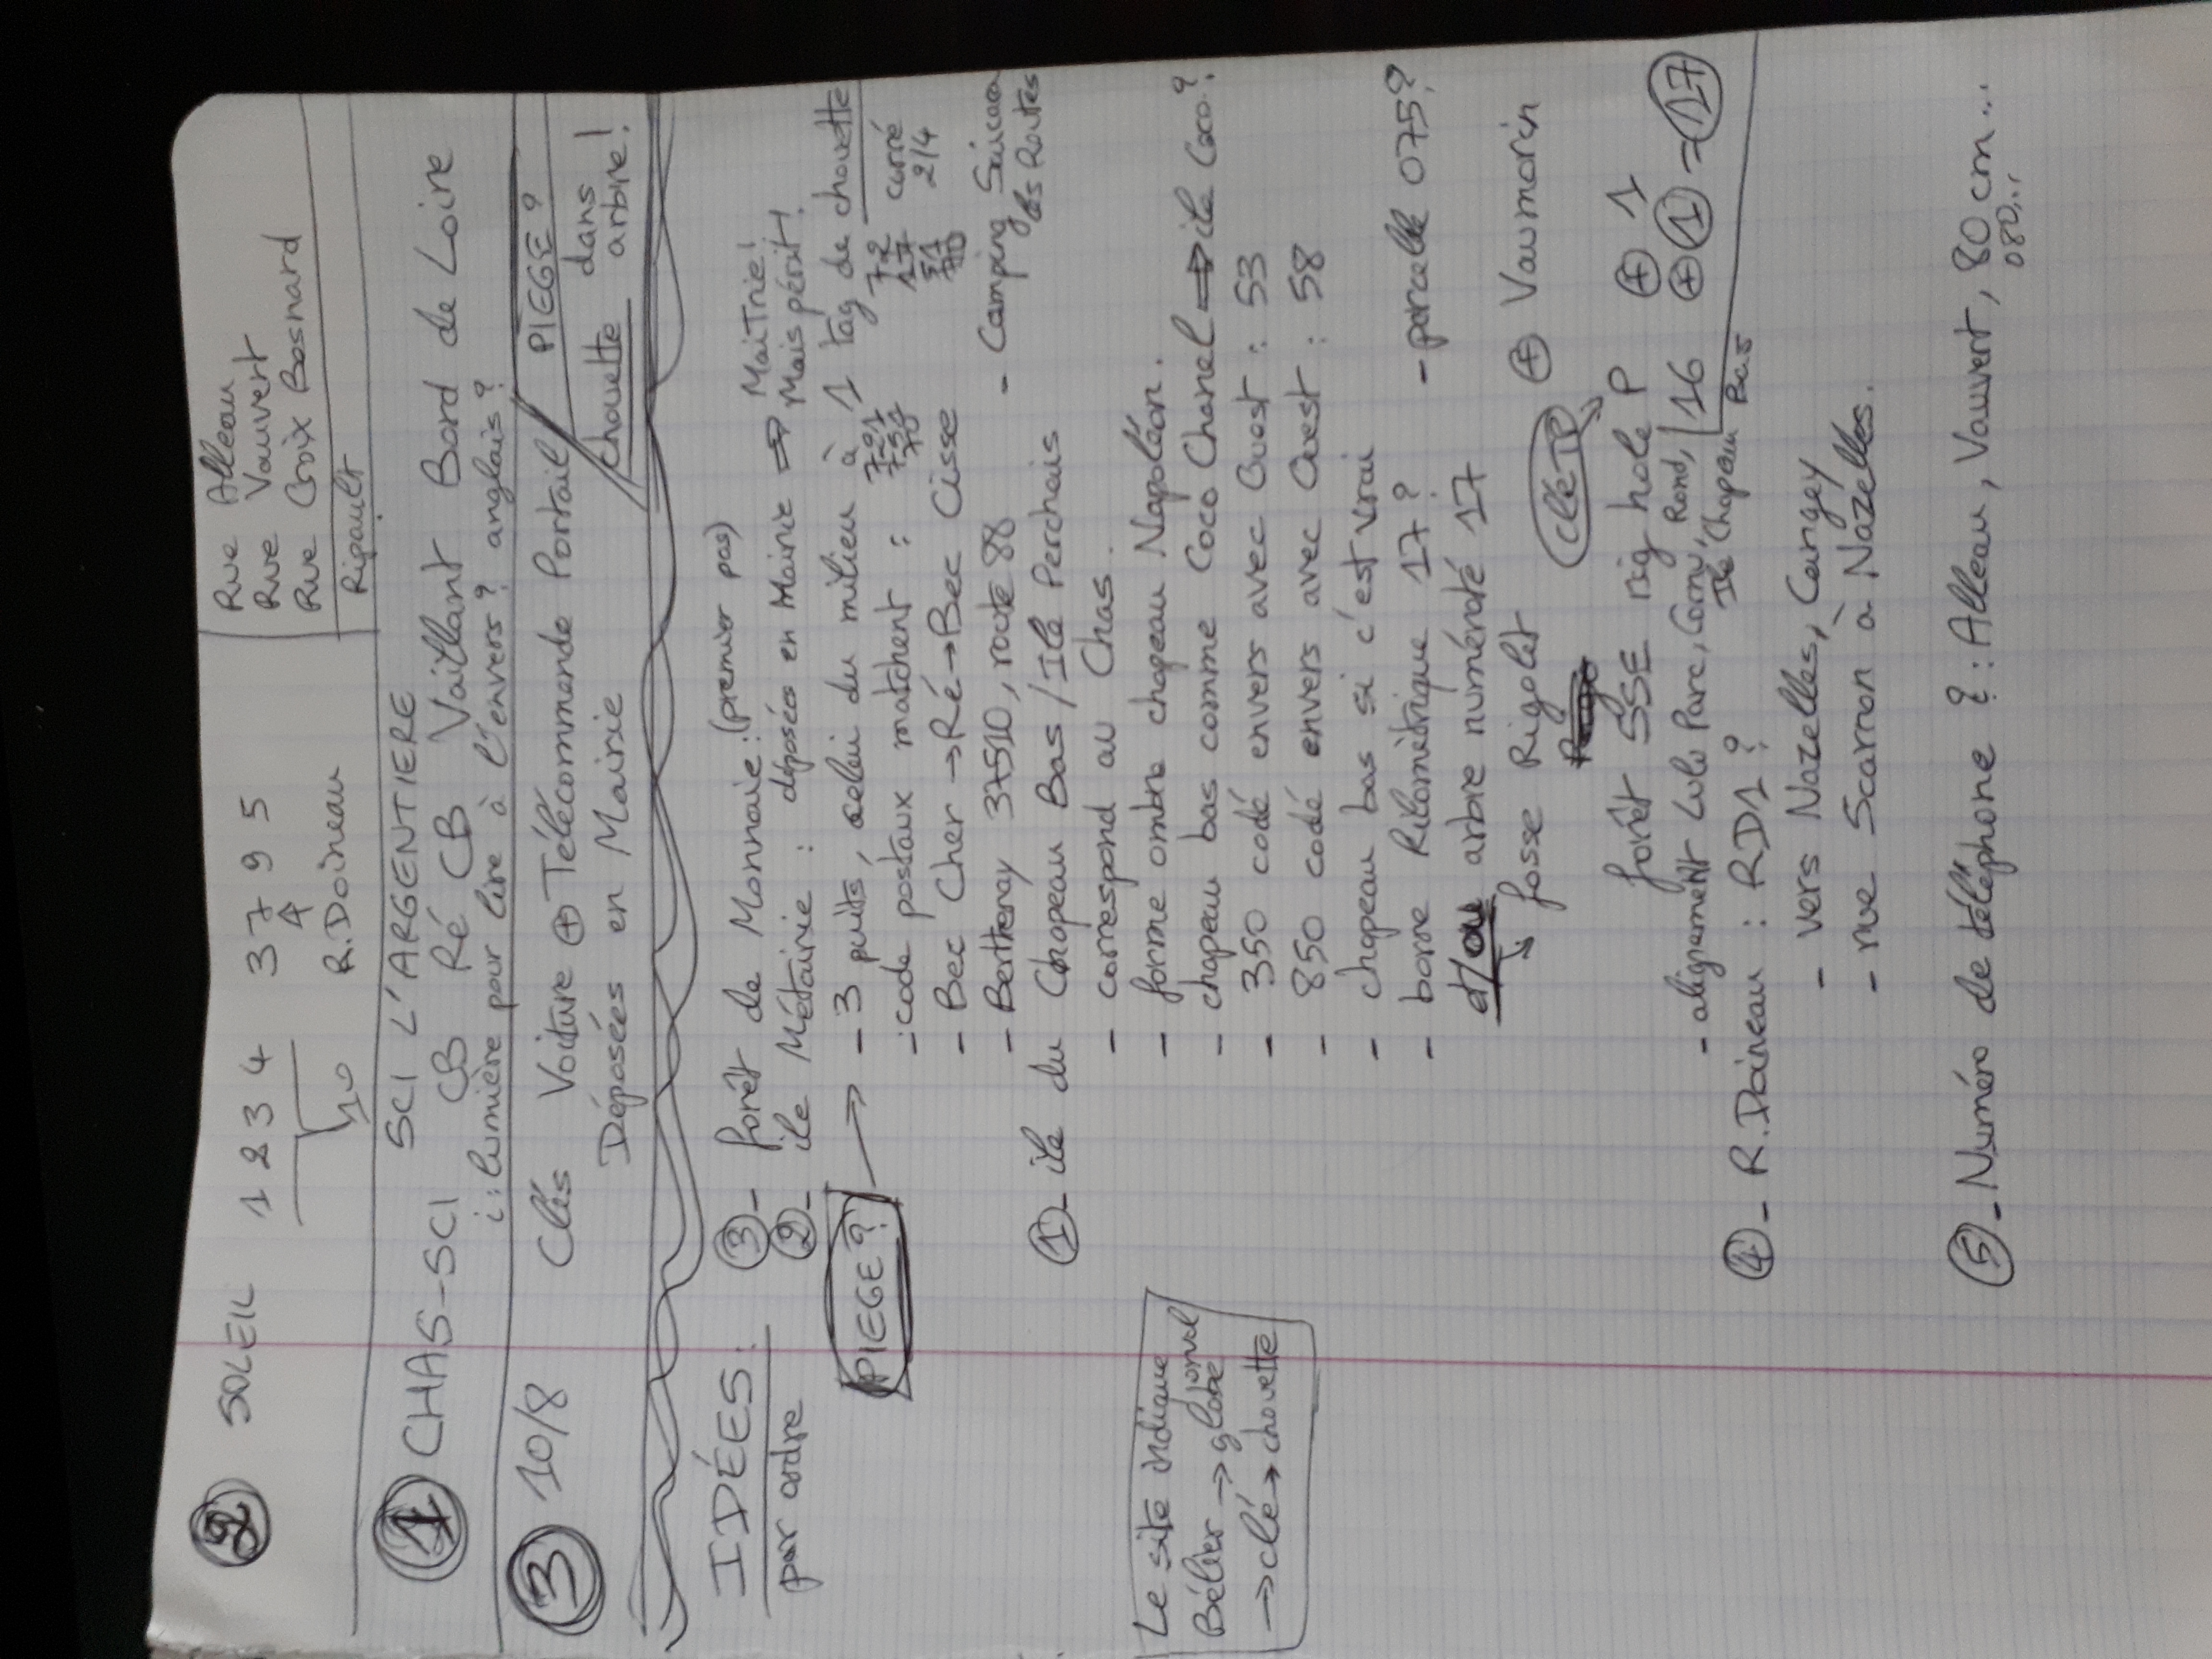 ② SOLEIL 1 2 3 4 3 7 9 5
10
R. Doineau
Rue Alleau
Rue Vauvert
Rue Croix Bosnard
Ripault
① CHAS-SCI SCI L'ARGENTIERE
CB Ré CB Vaillant Bord de Loire
i: lumière pour lire à l'envers? anglais?
③ 10/8 Clés Voiture ⊕ Télécommande Portail
Déposées en Mairie
PIEGE?
chouette dans arbre!
IDÉES:
par ordre
③- forêt de Monnaie: (premier pas)
②- île Métairie: déposées en Mairie ⇒ MaiTrie!
Mais périt!
PIEGE? → - 3 puits, celui du milieu à 1 tag de chouette
-: code postaux matchent :
carré
2/4
- Bec Cher → Ré → Bec Cisse
- Berthenay 37510, route 88 - Camping
des Routes
①- île du Chapeau Bas / Ile Perchais
- correspond au Chas.
- forme ombre chapeau Napoléon.
- chapeau bas comme Coco Chanel ⇒ île Coco?
- 350 codé envers avec Ouest : 53
- 850 codé envers avec Ouest : 58
- chapeau bas si c'est vrai
- borne kilométrique 17? - parcelle 075?
et/ou arbre numéroté 17
fosse Rigolet ⊕ Vaumorin
clé TP
forêt SSE rig hole P ⊕ 1
- alignement Lulu Parc, Cornu, Rond, 16 ⊕ ① = 17
Ile Chapeau Bas
④- R. Doineau : RD1?
- vers Nazelles, Cangey
- rue Scarron à Nazelles.
⑤- Numéro de téléphone?: Alleau, Vauvert, 80 cm...
080...
Le site indique
Bélier → globe
→ clé → chouette